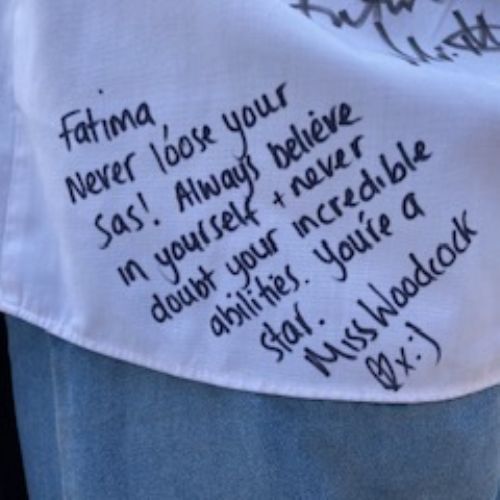 Fatima
Never loose your
Sas! Always believe
in yourself + never
doubt your incredible
abilities. You're a
star.
Miss Woodcock
♡x:)